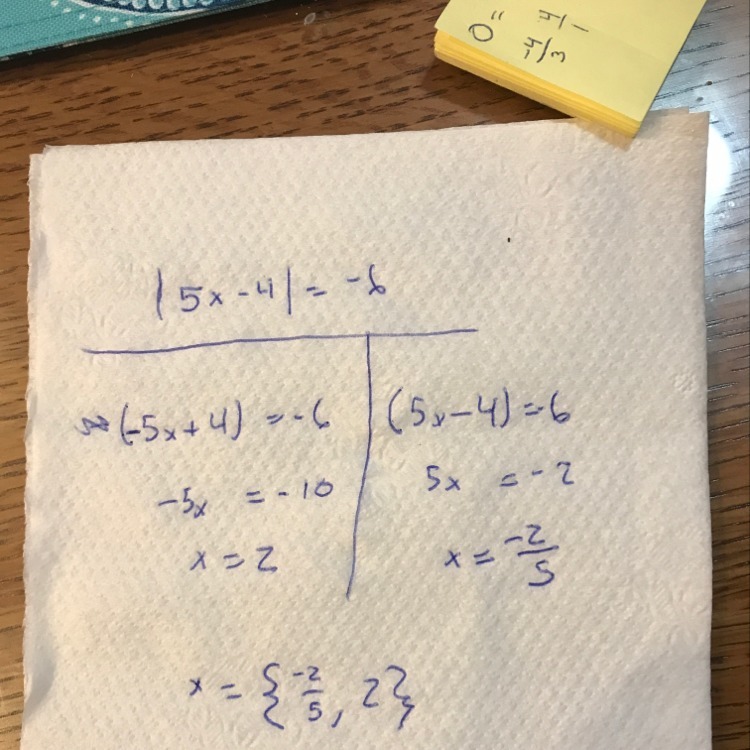 0" 4/1
-4/3
|5x-4| = -6
(-5x+4) = -6
-5x = -10
x = 2
(5x-4) = -6
5x = -2
x = -2/5
x = {-2/5, 2}